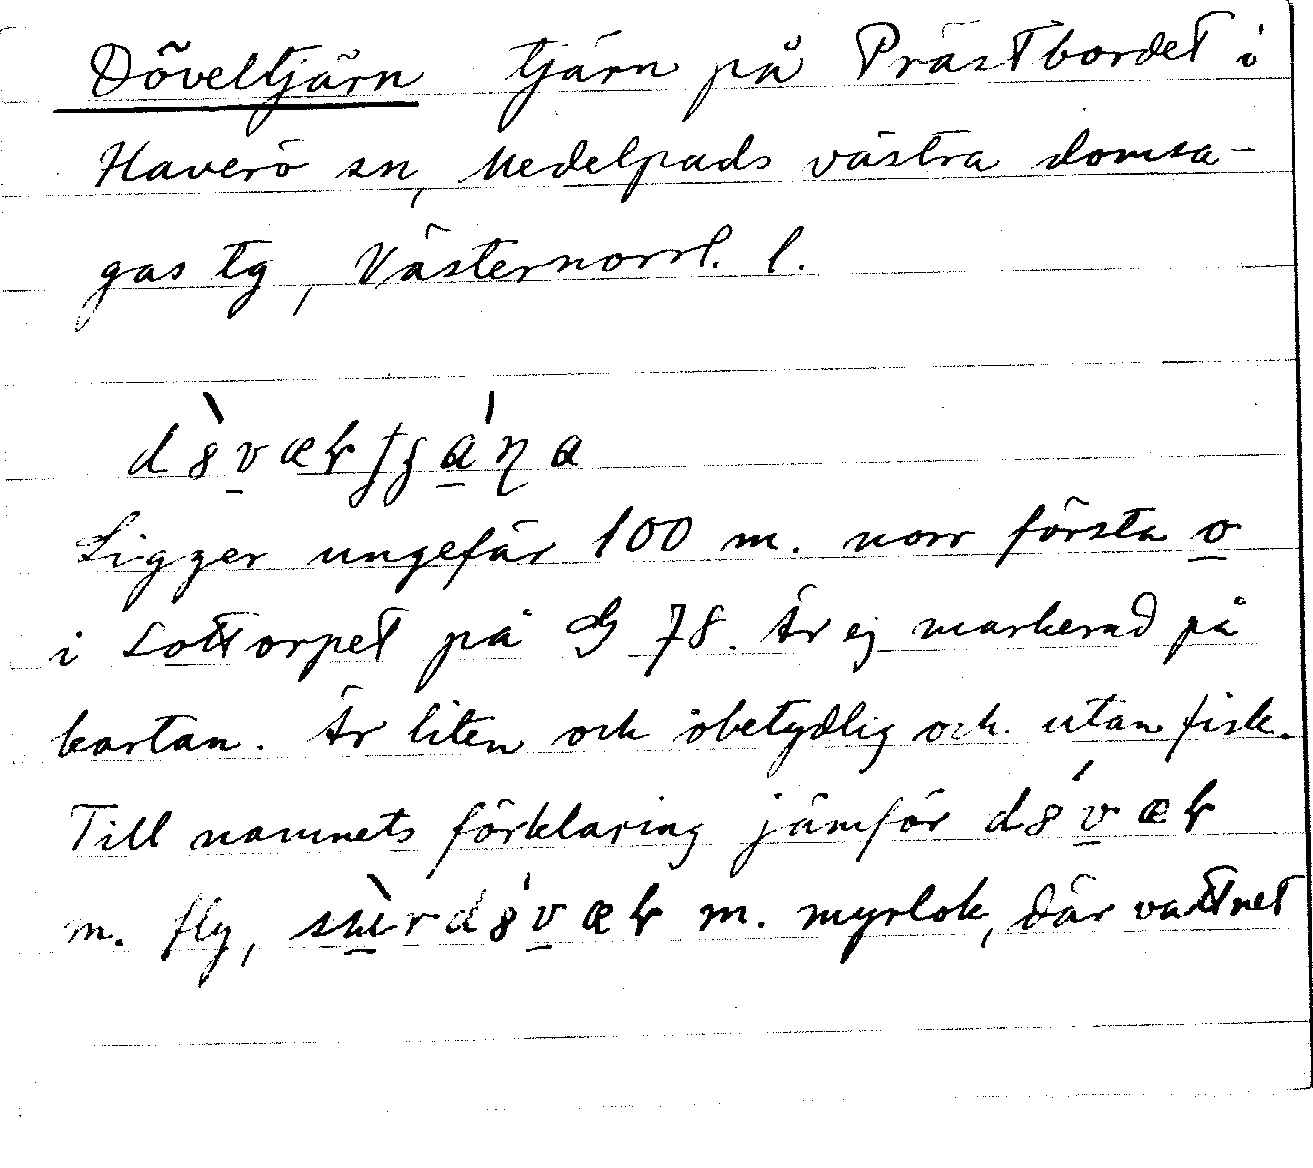 Döveltjärn tjärn på Prästbordet i
Haverö sn, Medelpads västra domsa-
gas tg, Västernorrl. l.
Ligger ungefär 100 m. norr första o
i Lottorpet på G 78. Är ej markerad på
kartan. Är liten och obetydlig och utan fisk.
Till namnets förklaring jämför
m. fly, m. myrlok, där vattnet